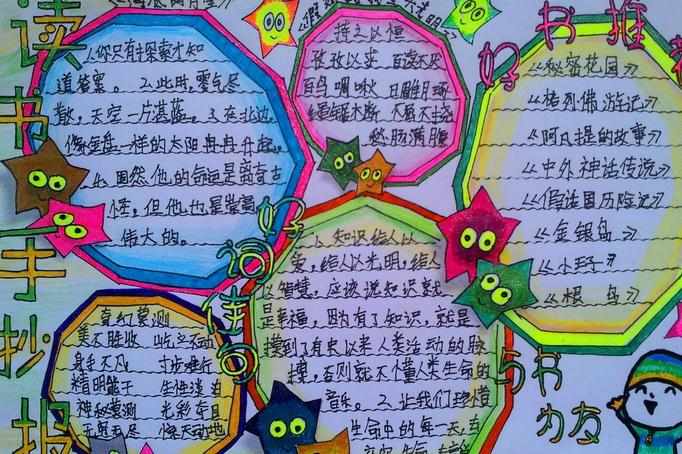 读书手抄报
《你只有探索才知
道答案。 2.此时,雾气尽
散,天空一片湛蓝。 3.在北边,
像金盘一样的太阳冉冉升起。
4.固然他的命运是离奇古
怪,但他也是崇高
伟大的。
持之以恒
孜孜以求 百读不厌
百鸟啁啾 日雕月琢
络绎不断
愁肠满腹
好书推荐
《秘密花园》
《格列佛游记》
《阿凡提的故事》
《中外神话传说》
《假话国历险记》
《金银岛》
《小王子》
《根鸟》
好词佳句
1.知识给人以
爱,给人以光明,给人
以智慧,应该说知识就
是幸福,因为有了知识,就是
摸到了有史以来人类活动的脉
搏,否则就不懂人类生命的
音乐。 2.让我们珍惜
生命中的每一天,去
奇幻莫测
美不胜收 屹立不动
身手不凡 寸步难行
精明能干 生性淡泊
神秘莫测 光彩夺目
无穷无尽 惊天动地
与书
为友